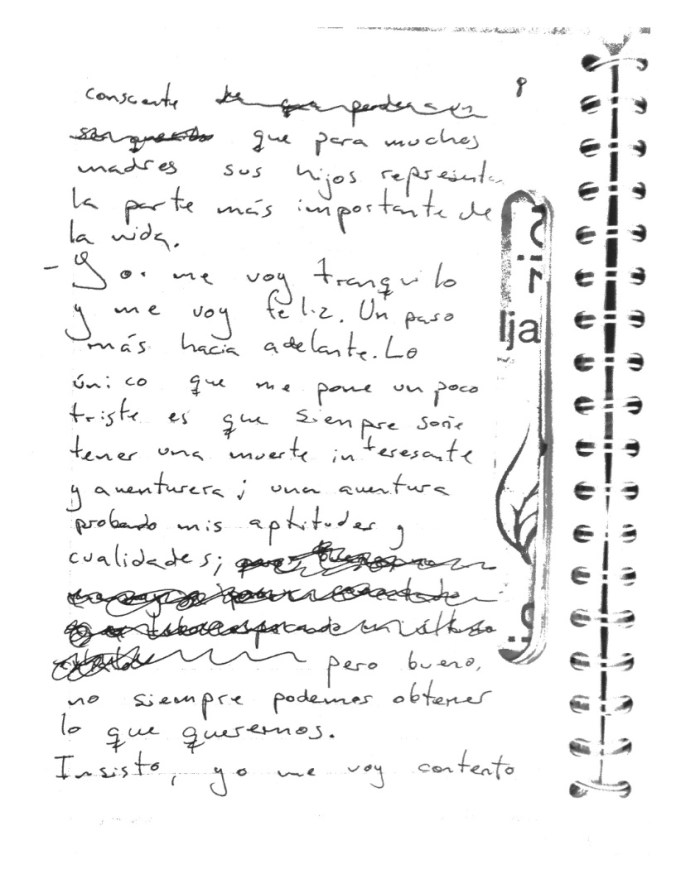 consciente
que para muchas
madres sus hijos representan
la parte más importante de
la vida.
- Yo. me voy tranquilo
y me voy feliz. Un paso
más hacia adelante. Lo
único que me pone un poco
triste es que siempre soñe
tener una muerte interesante
y aventurera; una aventura
probando mis aptitudes y
cualidades;
pero bueno,
no siempre podemos obtener
lo que queremos.
Insisto, yo me voy contento
lja